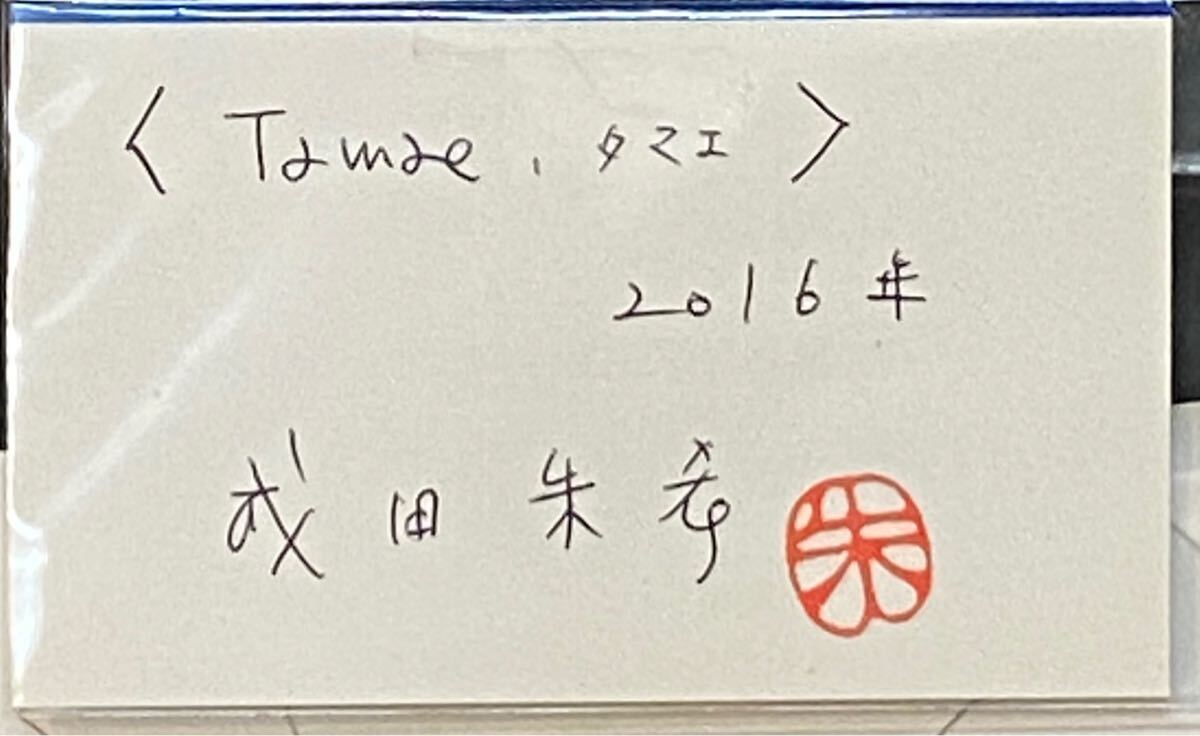 〈 Tamae, タマエ 〉
2016年
成田朱希 朱